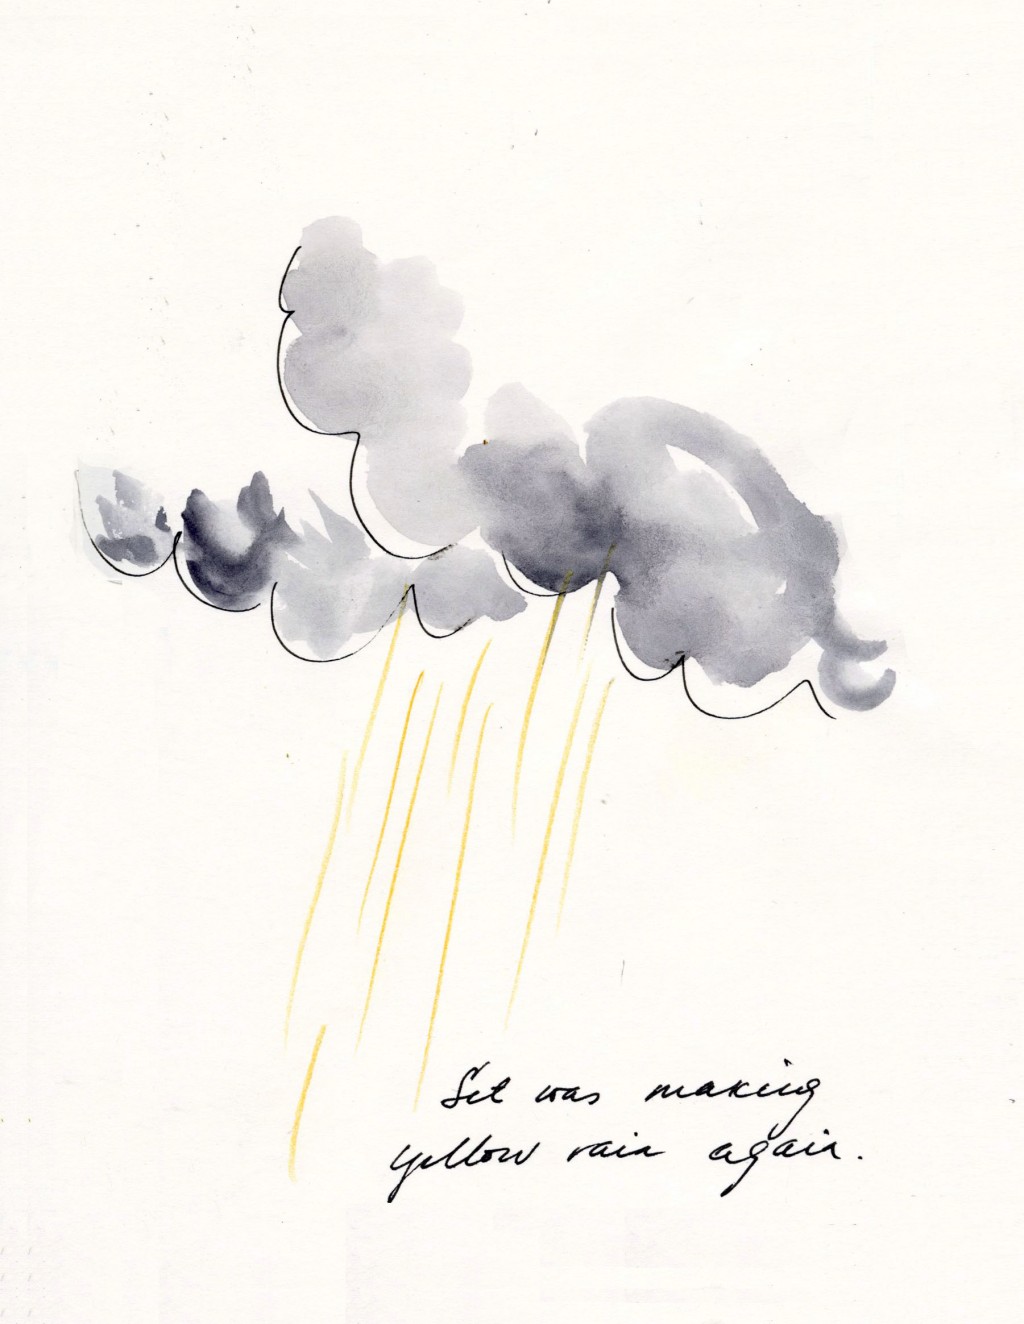 Set was making
yellow rain again.